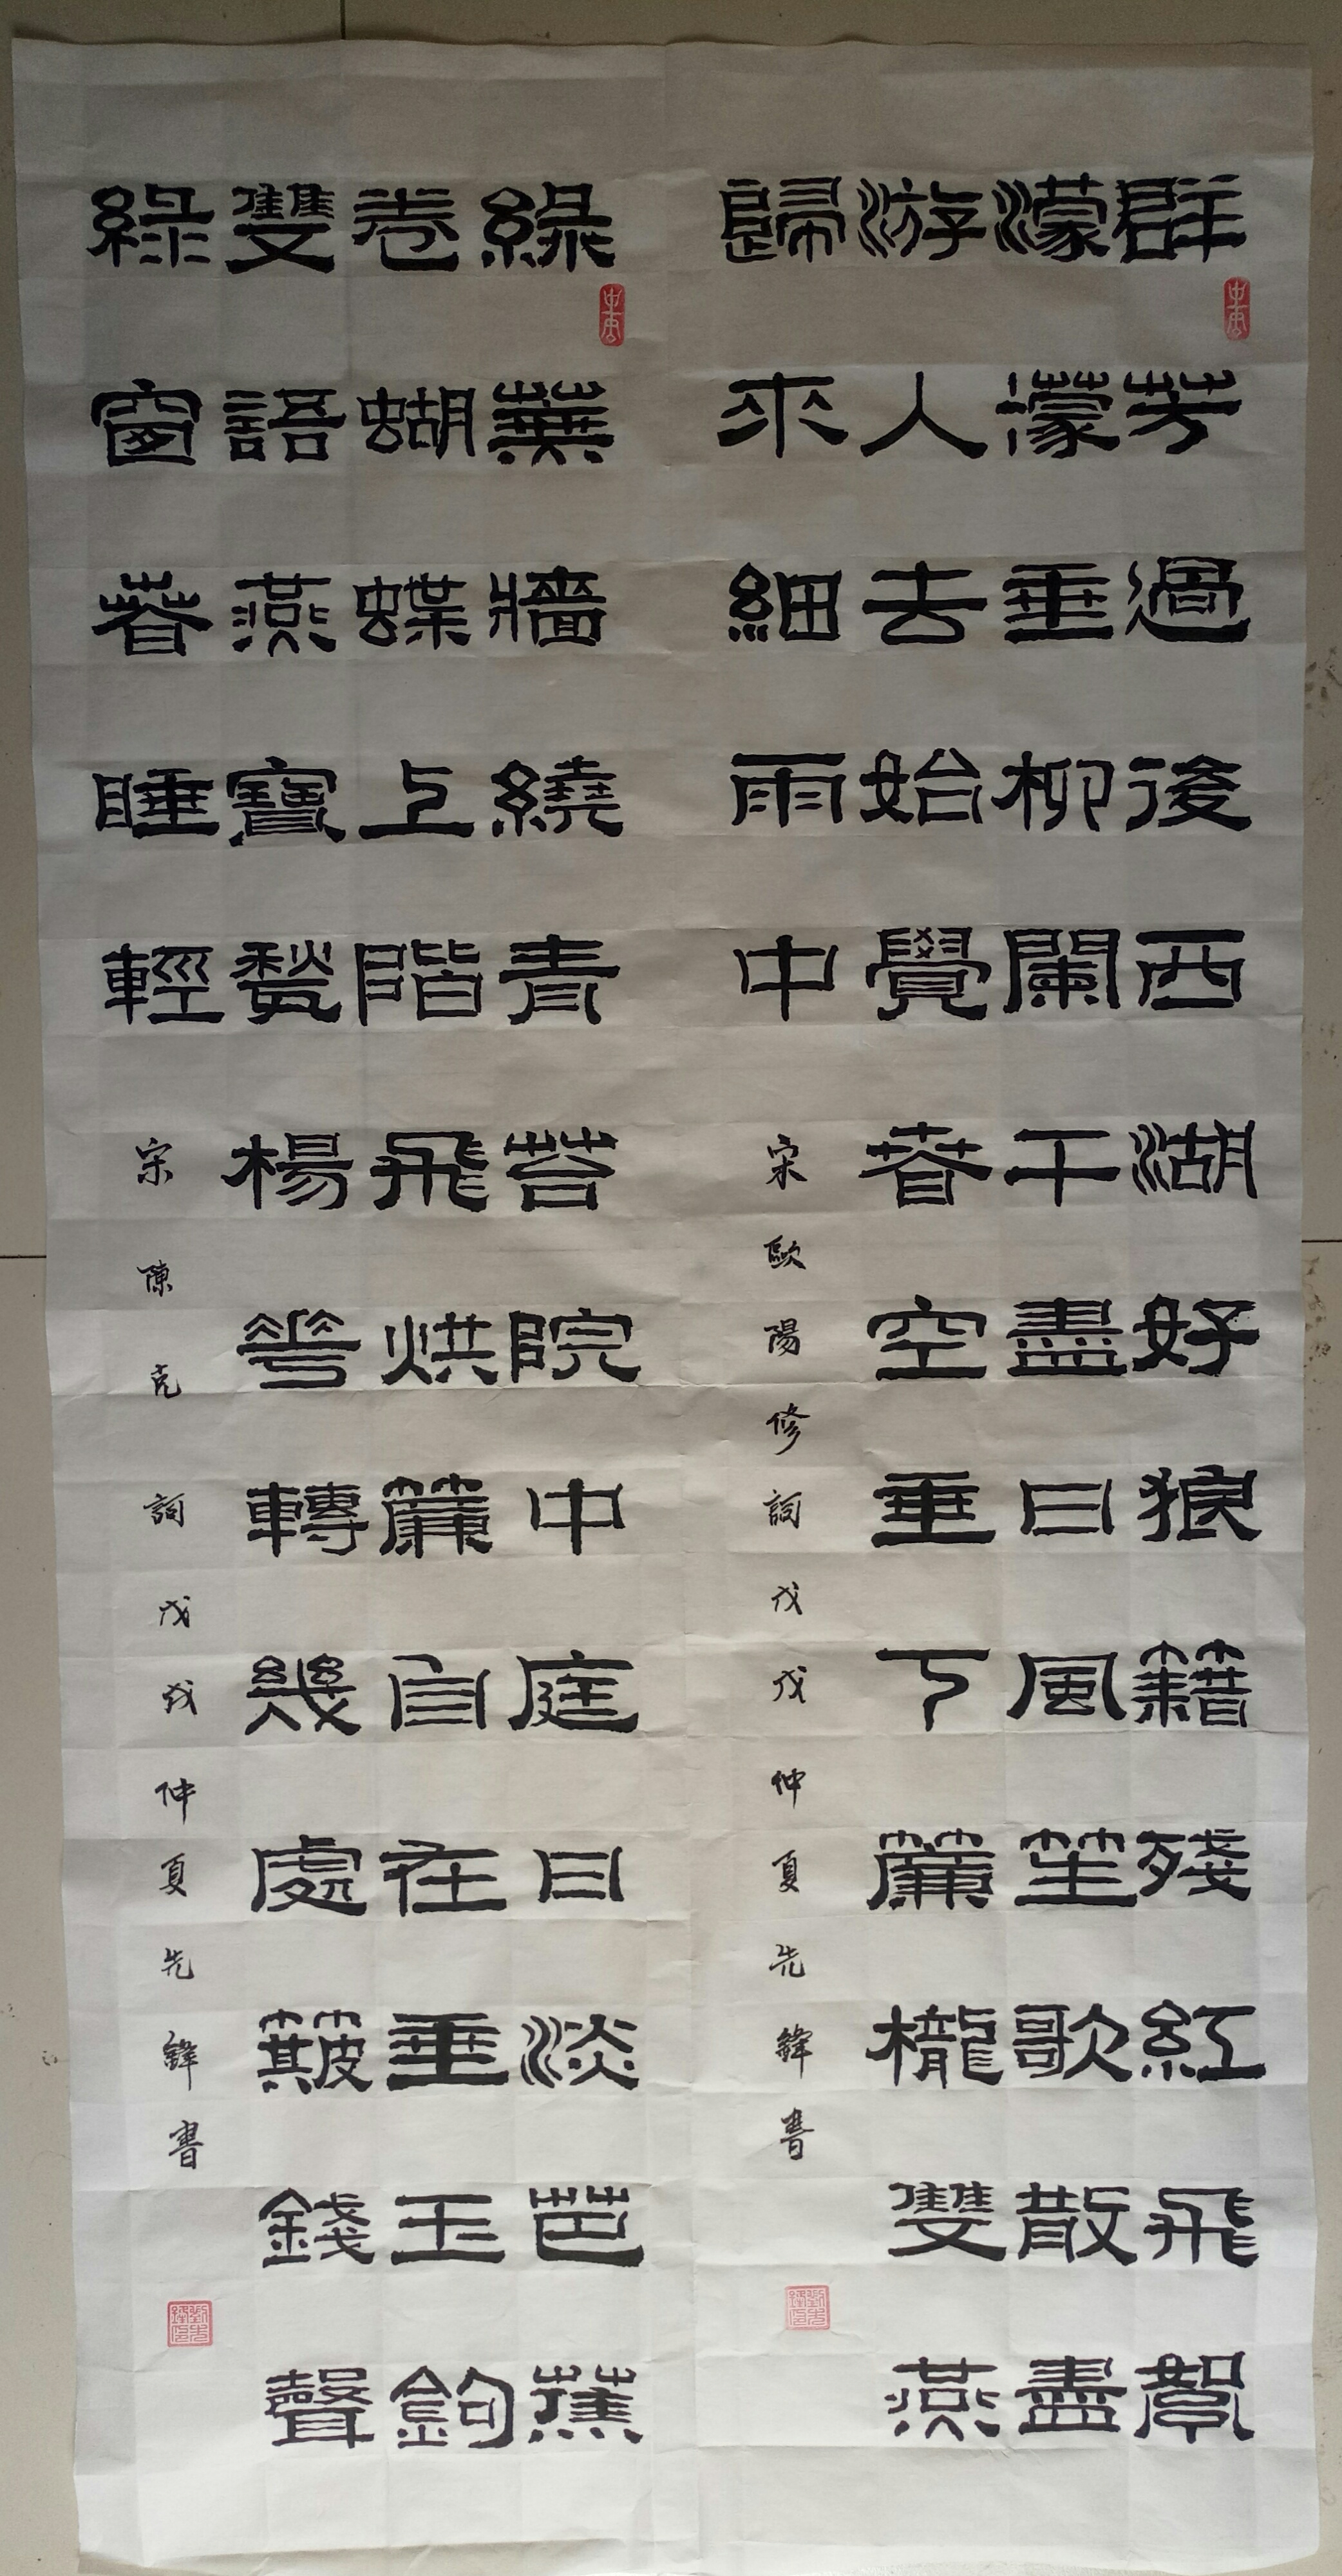 群芳過後西湖好狼籍殘紅飛絮
濛濛垂柳闌干盡日風笙歌散盡
游人去始覺春空垂下簾櫳雙燕
歸來細雨中
宋歐陽修詞戊戌仲夏先鋒書
綠蕪牆繞青苔院中庭日淡芭蕉
卷蝴蝶上階飛烘簾自在垂玉鉤
雙語燕寶甃楊花轉幾處簸錢聲
綠窗春睡輕
宋陳克詞戊戌仲夏先鋒書